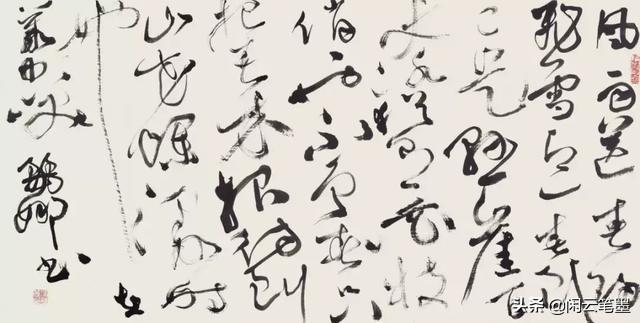 风雨送春归
飞雪迎春到
已是悬崖百
丈冰犹有花枝
俏俏也不争春只
把春来报待到
山花烂漫时
她在
丛中笑
头条 @闲云笔墨